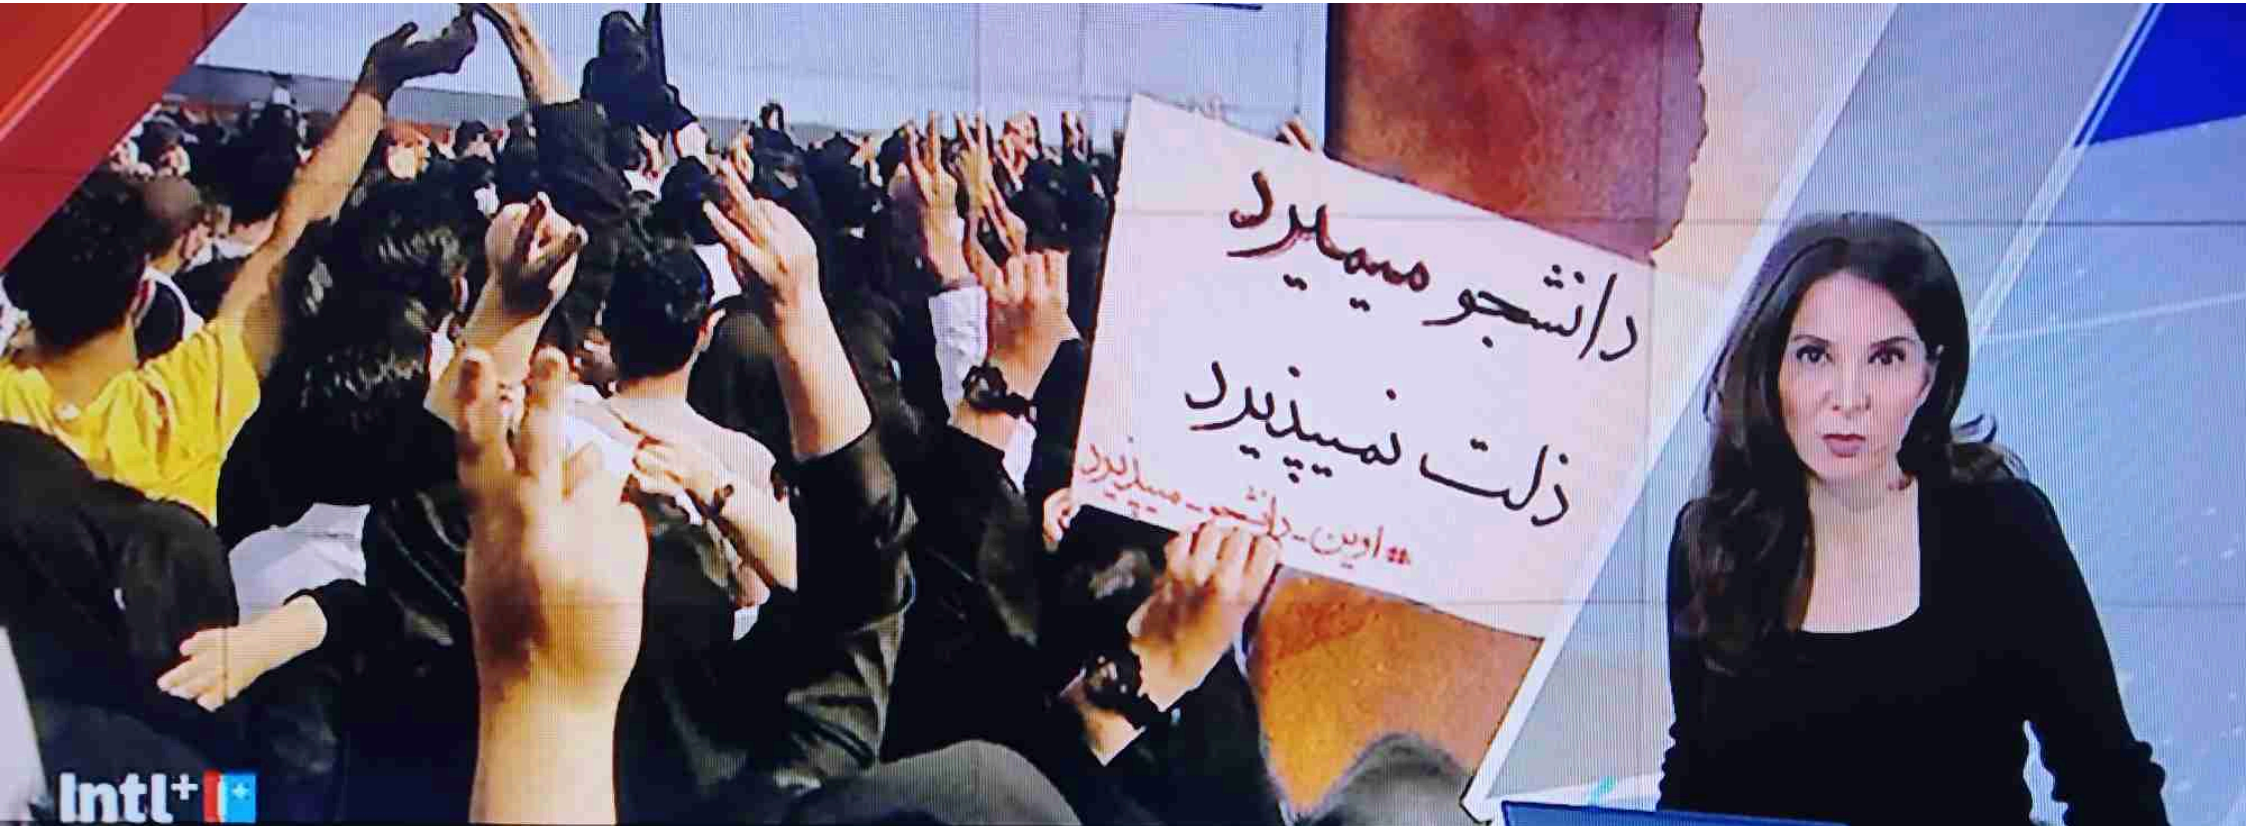 دانشجو میمیرد
ذلت نمیپذیرد
#اوین_دانشجو_میپذیرد
Intl+ I+